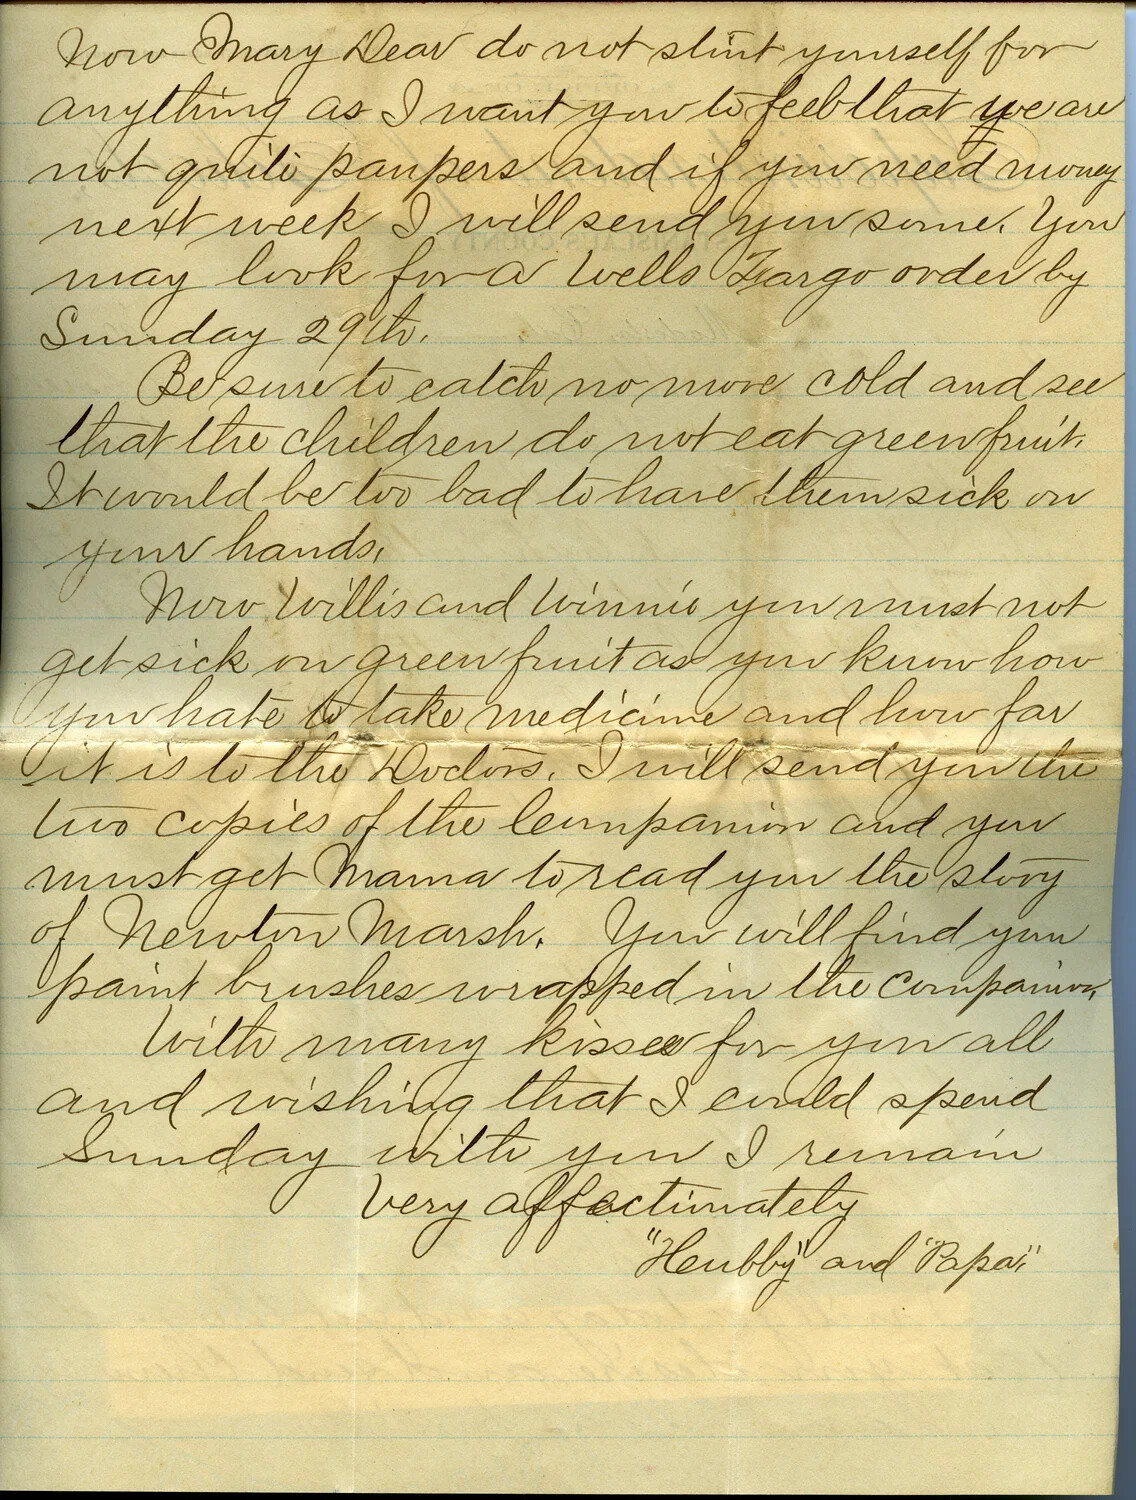 Now Mary Dear do not stint yourself for
anything as I want you to feel that we are
not quite paupers and if you need money
next week I will send you some. You
may look for a Wells Fargo order by
Sunday 29th.
Be sure to catch no more cold and see
that the children do not eat green fruit.
It would be too bad to have them sick on
your hands.
Now Willis and Winnie you must not
get sick on green fruit as you know how
you hate to take medicine and how far
it is to the Doctors. I will send you the
two copies of the Companion and you
must get Mama to read you the story
of Newton Marsh. You will find your
paint brushes wrapped in the Companion.
With many kisses for you all
and wishing that I could spend
Sunday with you I remain
Very affectionately
"Heubby" and "Papa."